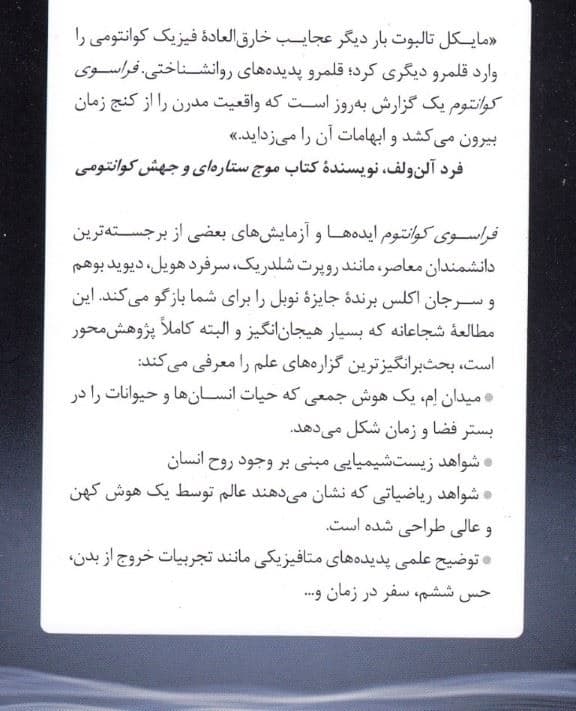 «مایکل تالبوت بار دیگر عجایب خارق‌العادهٔ فیزیک کوانتومی را
وارد قلمرو دیگری کرد؛ قلمرو پدیده‌های روانشناختی. فراسوی
کوانتوم یک گزارش به‌روز است که واقعیت مدرن را از کنج زمان
بیرون می‌کشد و ابهامات آن را می‌زداید.»
فرد آلن‌ولف، نویسندهٔ کتاب موج ستاره‌ای و جهش کوانتومی
فراسوی کوانتوم ایده‌ها و آزمایش‌های بعضی از برجسته‌ترین
دانشمندان معاصر، مانند روپرت شلدریک، سرفرد هویل، دیوید بوهم
و سرجان اکلس برندهٔ جایزهٔ نوبل را برای شما بازگو می‌کند. این
مطالعهٔ شجاعانه که بسیار هیجان‌انگیز و البته کاملاً پژوهش‌محور
است، بحث‌برانگیزترین گزاره‌های علم را معرفی می‌کند:
• میدان اِم، یک هوش جمعی که حیات انسان‌ها و حیوانات را در
بستر فضا و زمان شکل می‌دهد.
• شواهد زیست‌شیمیایی مبنی بر وجود روح انسان
• شواهد ریاضیاتی که نشان می‌دهند عالم توسط یک هوش کهن
و عالی طراحی شده است.
• توضیح علمی پدیده‌های متافیزیکی مانند تجربیات خروج از بدن،
حس ششم، سفر در زمان و...